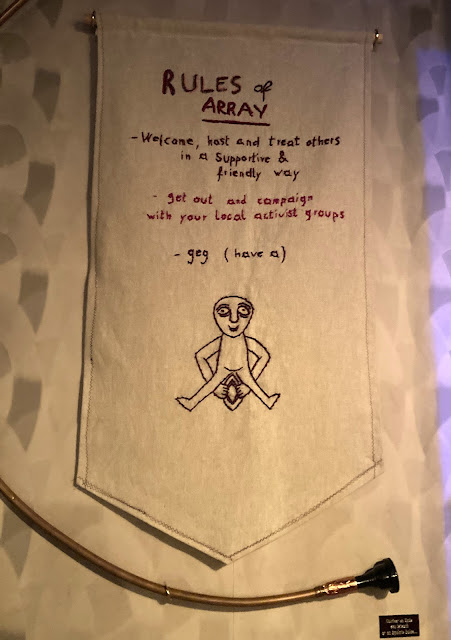 RULES of
ARRAY
- Welcome, host and treat others
in a supportive &
friendly way
- get out and campaign
with your local activist groups
- geg (have a)